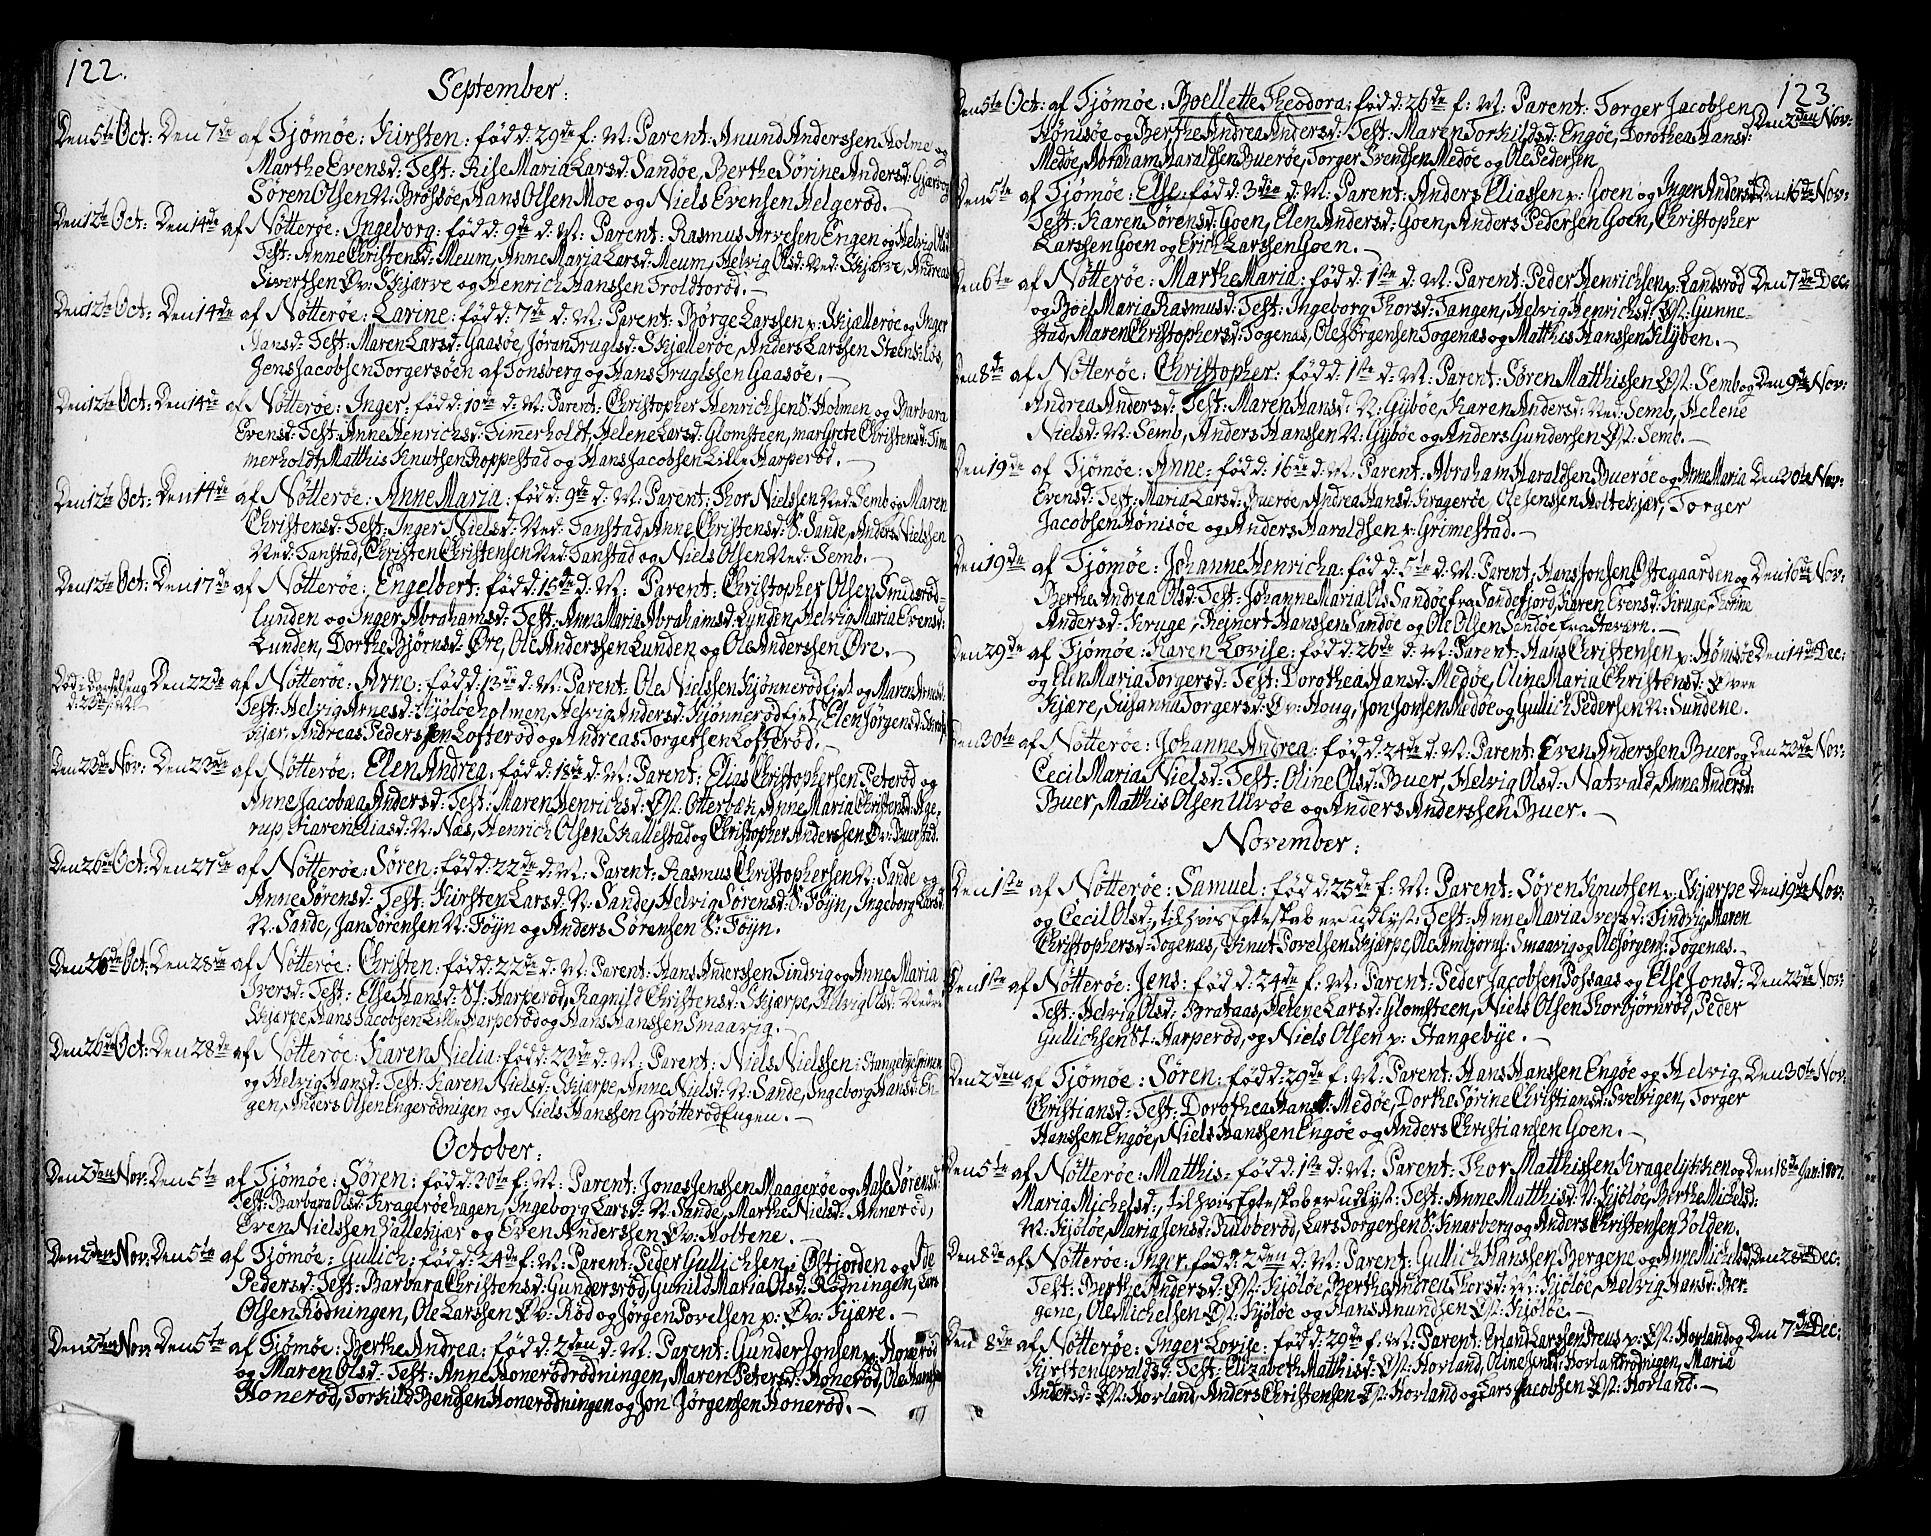 122.
September:
Den 5te Oct: Den 7de af Tjömöe: Kirsten: född: 29de f: M: Parent: Anund Anderssen Holme og
Marthe Evensd: Test: Rise Maria Larsd: Sandöe, Berthe Sörine Andersd:
Sören Olsen N: Brösöe, Hans Olsen Moe og Niels Evensen Helgeröd.
Den 12te Oct: Den 14de af Nötteröe: Ingeborg: född: 9de d: M: Parent: Rasmus Arvesen Engen og Helvig Olsd:
Test: Anne Christensd: Meum, Anne Maria Larsd: Meum, Helvig Olsd: Ned: Skjerve, Andreas
Sivertsen Öv: Skjærve og Henrich Hanssen Troldtoröd. —
Den 12te Oct: Den 14de af Nötteröe: Larine: född: 7de d: M: Parent: Börge Larssen p: Skjælleröe og Inger
Hansd: Test: Maren Larsd: Gaasöe, Jöran Truglsd: Skjælleröe, Anders Larssen Steenklös,
Jens Jacobsen Torgersöen af Tönsberg og Hans Truglssen Gaasöe. —
Den 12te Oct: Den 14de af Nötteröe: Inger: född: 10de d: M: Parent: Christopher Henrichsen S: Holmen og Barbara
Evensd: Test: Anne Henrichsd: Timmerholdt, Helene Larsd: Glomsteen, Margrete Christensd: Tim
merholdt, Matthis Knutsen Roppestad og Hans Jacobsen Lille Harperöd. —
Den 12te Oct: Den 14de af Nötteröe: Anne Maria: född: 9de d: M: Parent: Thor Nielssen Ned: Semb og Maren
Christensd: Test: Inger Nielsd: Ned: Tanstad, Anne Christensd: S: Sande, Anders Nielssen
Ned: Tanstad, Christen Christensen Ned: Tanstad og Niels Olsen Ned: Semb. —
Den 12te Oct: Den 17de af Nötteröe: Engelbert: född: 15de d: M: Parent: Christopher Olsen Smidsröd-
lunden og Inger Abrahamsd: Test: Anna Maria Abrahamsd: Lunden, Helvig Maria Evensd:
Lunden, Dorthe Björnsd: Öre, Ole Anderssen Lunden og Ole Anderssen Öre. —
Den 22de af Nötteröe: Arne: född: 13de d: M: Parent: Ole Nielssen Kjönneröd ejet og Maren Arnesd:
Test: Helvig Arnesd: Kjöloeholmen, Helvig Andersd: Kjönneröd ejet, Elen Jörgensd:
kjær, Andreas Pedersen Lofteröd og Andreas Torgersen Lofteröd. —
Den 23de Nov: Den 23de af Nötteröe: Elen Andrea: född: 18de d: M: Parent: Elias Christophersen Peteröd og
Anne Jacobæa Andersd: Test: Maren Henrichsd: Öst: Otterbæk, Anne Maria Christensd: Age-
rup, Karen Eliasd: N: Næs, Henrich Olsen Skallestad og Christopher Anderssen Öv: Buerstad.
Den 26de Oct: Den 27de af Nötteröe: Sören: född: 22de d: M: Parent: Rasmus Christophersen N: Sande og
Anne Sörensd: Test: Kirsten Larsd: N: Sande, Helvig Sörensd: S: Föyn, Ingeborg Larsd:
N: Sande, Jan Sörensen N: Föyn og Anders Sörensen S: Föyn.
Den 26de Oct: Den 28de af Nötteröe: Christen: född: 22de d: M: Parent: Hans Anderssen Tindvig og Anne Maria
Iversd: Test: Else Hansd: St: Harperöd, Ragnild Christensd: Skjærpe, Helvig Olsd: Nedre
Skjærpe, Hans Jacobsen Lille Harperöd og Hans Hanssen Smaavig. —
Den 26de Oct: Den 28de af Nötteröe: Karen Nielia: född: 23de d: M: Parent: Niels Nielssen: Stangebyeginen
og Helvig Hansd: Test: Karen Nielsd: Skjærpe, Anne Nielsd: N: Sande, Ingeborg Hansd: En-
gen, Anders Olsen Engerödnigen og Niels Hanssen Grötteröd Engen. —
October:
Den 2den Nov: Den 5te af Tjömöe: Sören: född: 20de f: M: Parent: Jonas Jenssen Maageröe og Aase Sörensd:
Test: Barbara Olsd: Krageröehagen, Ingeborg Larsd: N: Sande, Marthe Nielsd: Anneröd,
Even Nielssen Vallekjær og Even Anderssen Öv: Holtene. —
Den 2den Nov: Den 5te af Tjömöe: Gullich: född: 24de f: M: Parent: Peder Gullichsen p: Östjorden og
Pedersd: Test: Barbara Christensd: Gundersröd, Gunild Maria Olsd: Rödningen, Lars
Olsen Rödningen, Ole Larssen Öv: Röd og Jörgen Povelsen p: Öv: Kjære. —
Den 2den Nov: Den 5te af Tjömöe: Berthe Andrea: född: 2den d: M: Parent: Gunder Jonsen p: Honeröd
og Maren Olsd: Test: Anne Honerödrödningen, Maren Petersd: Honeröd, Ole Hanssen
Honeröd, Torkild Bendsen Honerödningen og Jon Jörgensen Honeröd. —
123.
Den 5te Oct: af Tjömöe: Boellette Theodora: född: 26de f: M: Parent: Torger Jacobsen Den 2den Nov:
Hönisöe og Berthe Andrea Andersd: Test: Maren Torkildsd: Engöe, Dorothea Hansd:
Medöe, Abraham Haraldsen Bueröe, Torger Svendsen Medöe og Ole Pedersen
Den 5te af Tjömöe: Else: född: 3die d: M: Parent: Anders Eliassen p: Goen og Inger Andersd: Den 16de Nov:
Test: Karen Sörensd: Goen, Elen Andersd: Goen, Anders Pedersen Goen, Christopher
Larssen Goen og Erich Larssen Goen. —
Den 6te af Nötteröe: Marthe Maria: född: 1ste d: M: Parent: Peder Henrichsen p: Landsröd Den 7de Dec:
og Boel Maria Rasmusd: Test: Ingeborg Thorsd: Tangen, Helvig Henrichsd: Öst: Gunne-
stad, Maren Christophersd: Togenæs, Ole Jörgensen Togenæs og Matthis Hanssen Kilyben. —
Den 8de af Nötteröe: Christopher: född: 1ste d: M: Parent: Sören Matthissen Öst: Semb og Den 9de Nov:
Andrea Andersd: Test: Maren Hansd: N: Gyböe, Karen Andersd: Ned: Semb, Helene
Nielsd: N: Semb, Anders Hanssen N: Gyböe og Anders Gundersen Öst: Semb. —
Den 19de af Tjömöe: Anne: född: 16de d: M: Parent: Abraham Haraldsen Bueröe og Anne Maria Den 20de Nov:
Evensd: Test: Maria Larsd: Bueröe, Andrea Hansd: Krageröe, Ole Jenssen Holtekjær, Torger
Jacobsen Hönisöe og Anders Haraldsen p: Grimestad. —
Den 19de af Tjömöe: Johanne Henricha: född: 5te d: M: Parent: Hans Jonsen Östegaarden og Den 16de Nov:
Berthe Andrea Olsd: Test: Johanne Maria Olsd: Sandöe fra Sandefjord, Karen Evensd: Kruge, Thrine
Andersd: Kruge, Rejnert Hanssen Sandöe og Ole Olsen Sandöe fra Stavern. —
Den 29de af Tjömöe: Karen Lovise: född: 26de d: M: Parent: Hans Christensen p: Hönisöe Den 14de Dec:
og Elen Maria Torgersd: Test: Dorothea Hansd: Medöe, Oline Maria Christensd: Övre
Kjære, Susanna Torgersd: Öv: Houg, Jon Jonsen Medöe og Gullich Pedersen N: Sundene.
Den 30te af Nötteröe: Johanne Andrea: född: 24de d: M: Parent: Even Anderssen Buer og Den 23de Nov:
Cecil Maria Nielsd: Test: Oline Olsd: Buer, Helvig Olsd: Natvald, Anne Andersd:
Buer, Matthis Olsen Ulvöe og Anders Anderssen Buer. —
November:
Den 1ste af Nötteröe: Samuel: född: 25de f: M: Parent: Sören Knutsen p: Skjærpe Den 19de Nov:
og Cecil Olsd:, til hvis Egteskab er udlyst: Test: Anne Maria Iversd: Tindvig, Maren
Christophersd: Togenæs, Knut Povelsen Skjærpe, Ole Ambjörns: Smaavig og Ole Jörgens: Togenæs. —
Den 1ste af Nötteröe: Jens: född: 24de f: M: Parent: Peder Jacobsen Possaas og Else Jonsd: Den 23de Nov:
Test: Helvig Olsd: Brataas, Helene Larsd: Glomsteen, Niels Olsen Thorbjörnröd, Peder
Gullichsen St: Harperöd, og Niels Olsen p: Stangebye. —
Den 2den af Tjömöe: Sören: född: 29de f: M: Parent: Hans Hanssen Engöe og Helvig Den 30te Nov:
Christiansd: Test: Dorothea Hansd: Medöe, Dorthe Sörine Christiansd: Svelvigen, Torger
Hanssen Engöe, Niels Hanssen Engöe og Anders Christiansen Goen. —
Den 5te af Nötteröe: Matthis: född: 1ste d: M: Parent: Thor Matthissen Kragelykken og Den 18de Jan: 1807.
Maria Michelsd:, til hvis Egteskab er udlyst: Test: Anne Matthisd: N: Kjölöe, Berthe Michelsd:
N: Kjölöe, Maria Jensd: Rubberöd, Lars Torgersen S: Knarberg og Anders Christensen Bolden.
Den 8de af Nötteröe: Inger: född: 2den d: M: Parent: Gullich Hanssen Bergene og Anne Michelsd: Den 28de Dec:
Test: Berthe Andersd: Öst: Kjölöe, Berthe Andrea Thorsd: N: Kjölöe, Helvig Hansd: Ber-
gene, Ole Michelsen Öst: Kjölöe og Hans Anundsen Öst: Kjölöe. —
Den 8de af Nötteröe: Inger Lovise: född: 29de f: M: Parent: Erland Larssen Treus p: Öst: Hovland og Den 7de Dec:
Kirsten Gevaldsd: Test: Elizabeth Mathisd: Öst: Hovland, Oline Jensd: Hovlandrödnigen, Maria
Andersd: Öst: Hovland, Anders Christensen Öst: Hovland og Lars Jacobsen Öst: Hovland. —